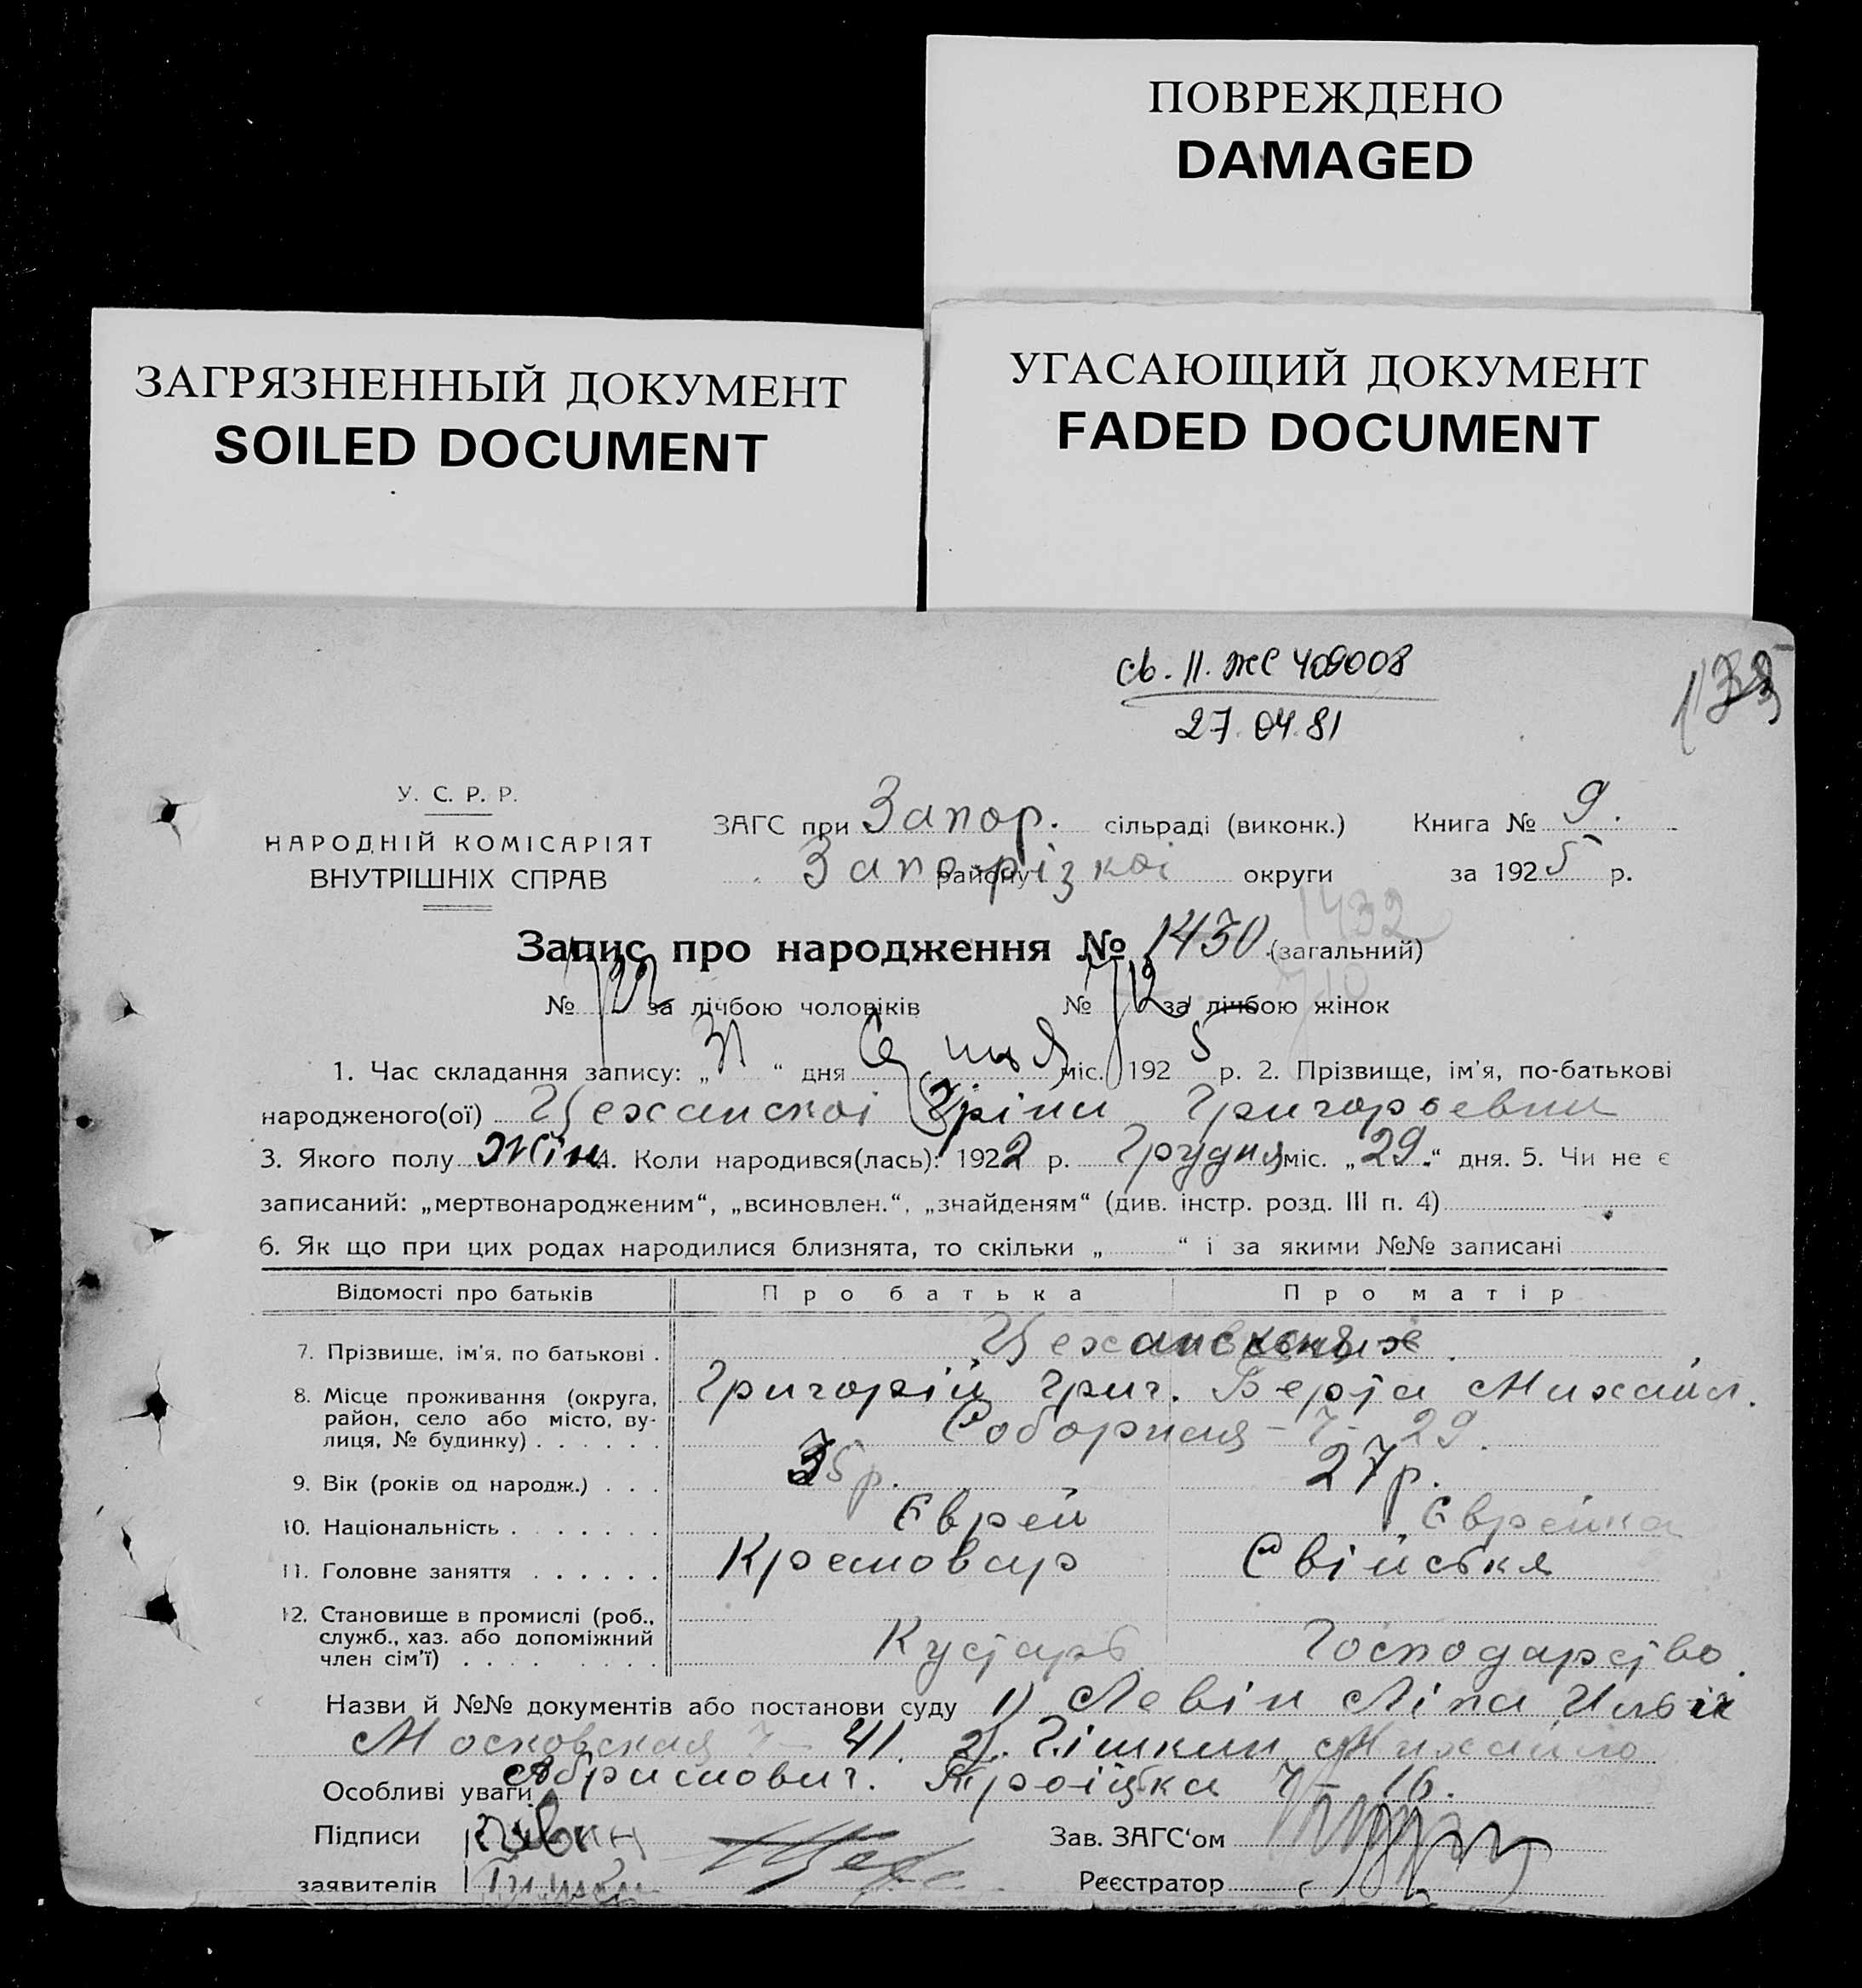 ПОВРЕЖДЕНО
DAMAGED
ЗАГРЯЗНЕННЫЙ ДОКУМЕНТ
SOILED DOCUMENT
УГАСАЮЩИЙ ДОКУМЕНТ
FADED DOCUMENT
св. II. ЖС 409008
27.04.81
У. С. Р. Р.
НАРОДНІЙ КОМІСАРІЯТ
ВНУТРІШНІХ СПРАВ
ЗАГС при Запор. сільраді (виконк.) Книга № 9.
Запорізкоі району округи за 1925 р.
1432
Запис про народження № 1430 (загальний)
710
№ за лічбою чоловіків № 712 за лічбою жінок
1. Час складання запису: „31“ дня міс. 1925 р. 2. Прізвище, ім'я, по-батькові
народженого(ої) Цеханскоі Іріни Григорьевни
3. Якого полу Жін 4. Коли народився(лась): 1922 р. Грудня міс. „29.“ дня. 5. Чи не є
записаний: „мертвонародженим“, „всиновлен.“, „знайденям“ (див. інстр. розд. III п. 4)
6. Як що при цих родах народилися близнята, то скільки „ “ і за якими №№ записані
Відомості про батьків Про батька Про матір
7. Прізвище, ім'я, по батькові .
8. Місце проживання (округа, Григорій Григ. Берта Михайл.
район, село або місто, ву-
лиця, № будинку) . . . . . . Соборная - 7 - 29.
9. Вік (років од народж.) . . . 35 р. 27 р.
10. Національність . . . . . . . Єврей Єврейка
11. Головне заняття . . . . . . Кремовар Свійська
12. Становище в промислі (роб.,
служб., хаз. або допоміжний
член сім'ї) . . . . . . . . Кустарь Господарство.
Назви й №№ документів або постанови суду 1) Левін Ліпа Ильіч
Московская 7 - 41. 2). Гішкин Михайло
Особливі уваги Абрамович. Троіцка 7 - 16.
Підписи Левин Зав. ЗАГС'ом
заявителів Реєстратор